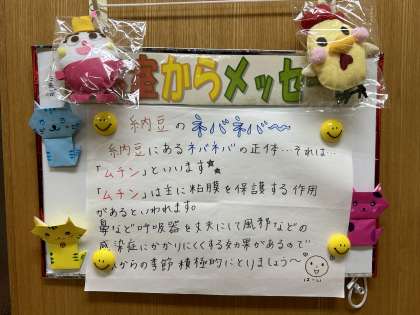 室からメッセー
納豆のネバネバ～～
納豆にあるネバネバの正体…それは…
「ムチン」といいます
「ムチン」は主に粘膜を保護する作用
があるといわれます。
鼻など呼吸器を丈夫にして風邪などの
感染症にかかりにくくする効果があるので
からの季節積極的にとりましょう～
はーい